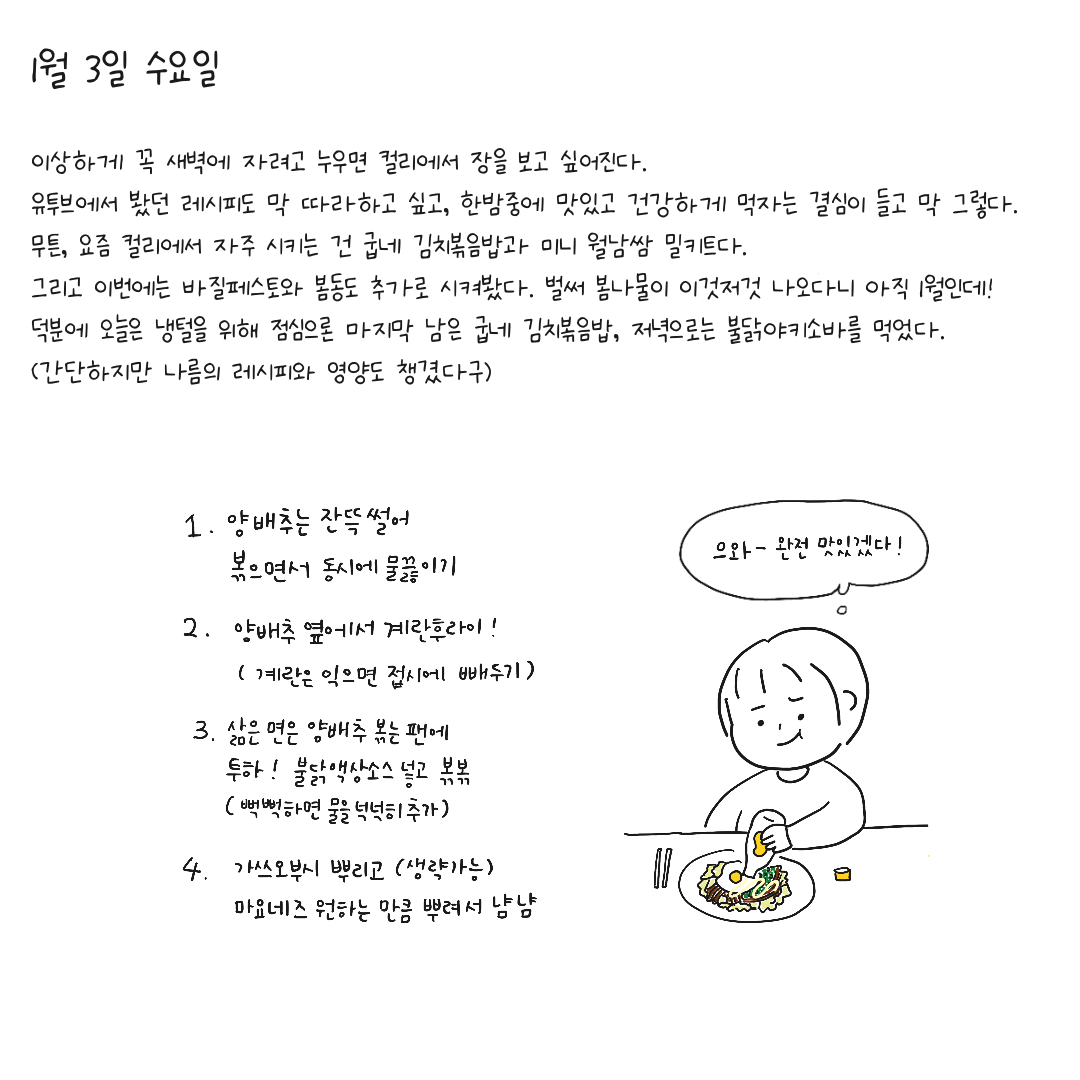 1월 3일 수요일
이상하게 꼭 새벽에 자려고 누우면 컬리에서 장을 보고 싶어진다.
유투브에서 봤던 레시피도 막 따라하고 싶고, 한밤중에 맛있고 건강하게 먹자는 결심이 들고 막 그렇다.
무튼, 요즘 컬리에서 자주 시키는 건 굽네 김치볶음밥과 미니 월남쌈 밀키트다.
그리고 이번에는 바질페스토와 봄동도 추가로 시켜봤다. 벌써 봄나물이 이것저것 나오다니 아직 1월인데!
덕분에 오늘은 냉털을 위해 점심으론 마지막 남은 굽네 김치볶음밥, 저녁으로는 불닭야키소바를 먹었다.
(간단하지만 나름의 레시피와 영양도 챙겼다구)
1. 양배추는 잔뜩 썰어
볶으면서 동시에 물끓이기
2. 양배추 옆에서 계란후라이!
(계란은 익으면 접시에 빼두기)
3. 삶은 면은 양배추 볶는 팬에
투하! 불닭액상소스 넣고 볶볶
(뻑뻑하면 물을 넉넉히 추가)
4. 가쓰오부시 뿌리고 (생략가능)
마요네즈 원하는 만큼 뿌려서 냠냠
으와- 완전 맛있겠다!